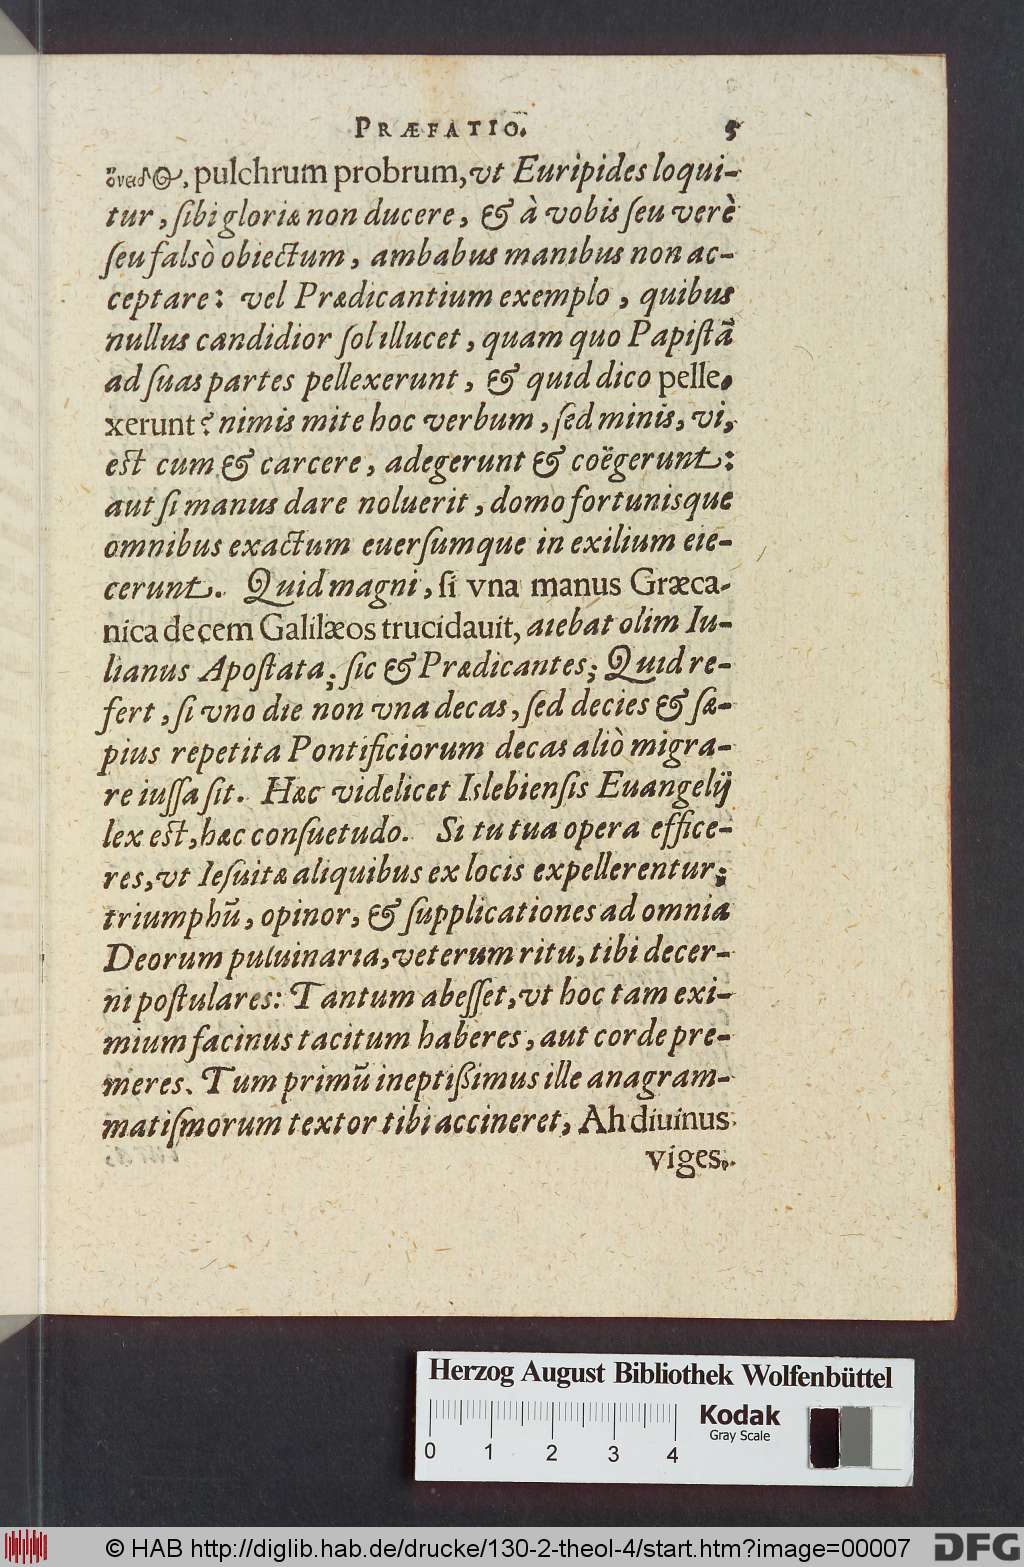 PRÆFATIO. 5
ὄνειδ(ος), pulchrum probrum, vt Euripides loqui-
tur, ſibi gloriæ non ducere, & à vobis ſeu verè
ſeu falsò obiectum, ambabus manibus non ac-
ceptare: vel Prædicantium exemplo, quibus
nullus candidior ſol illucet, quam quo Papiſtã
ad ſuas partes pellexerunt, & quid dico pelle-
xerunt? nimis mite hoc verbum, ſed minis, vi,
eſt cum & carcere, adegerunt & coëgerunt:
aut ſi manus dare noluerit, domo fortunisque
omnibus exactum euerſumque in exilium eie-
cerunt. Quid magni, ſi vna manus Græca-
nica decem Galilæos trucidauit, aiebat olim Iu-
lianus Apoſtata; ſic & Prædicantes; Quid re-
fert, ſi vno die non vna decas, ſed decies & ſæ-
pius repetita Pontificiorum decas aliò migra-
re iuſſa ſit. Hæc videlicet Islebienſis Euangelij
lex eſt, hæc conſuetudo. Si tu tua opera effice-
res, vt Ieſuitæ aliquibus ex locis expellerentur;
triumphũ, opinor, & ſupplicationes ad omnia
Deorum puluinaria, veterum ritu, tibi decer-
ni poſtulares: Tantum abeſſet, vt hoc tam exi-
mium facinus tacitum haberes, aut corde pre-
meres. Tum primũ ineptißimus ille anagram-
matiſmorum textor tibi accineret, Ah diuinus
viges,
Herzog August Bibliothek Wolfenbüttel
Kodak
Gray Scale
0 1 2 3 4
© HAB http://diglib.hab.de/drucke/130-2-theol-4/start.htm?image=00007
DFG